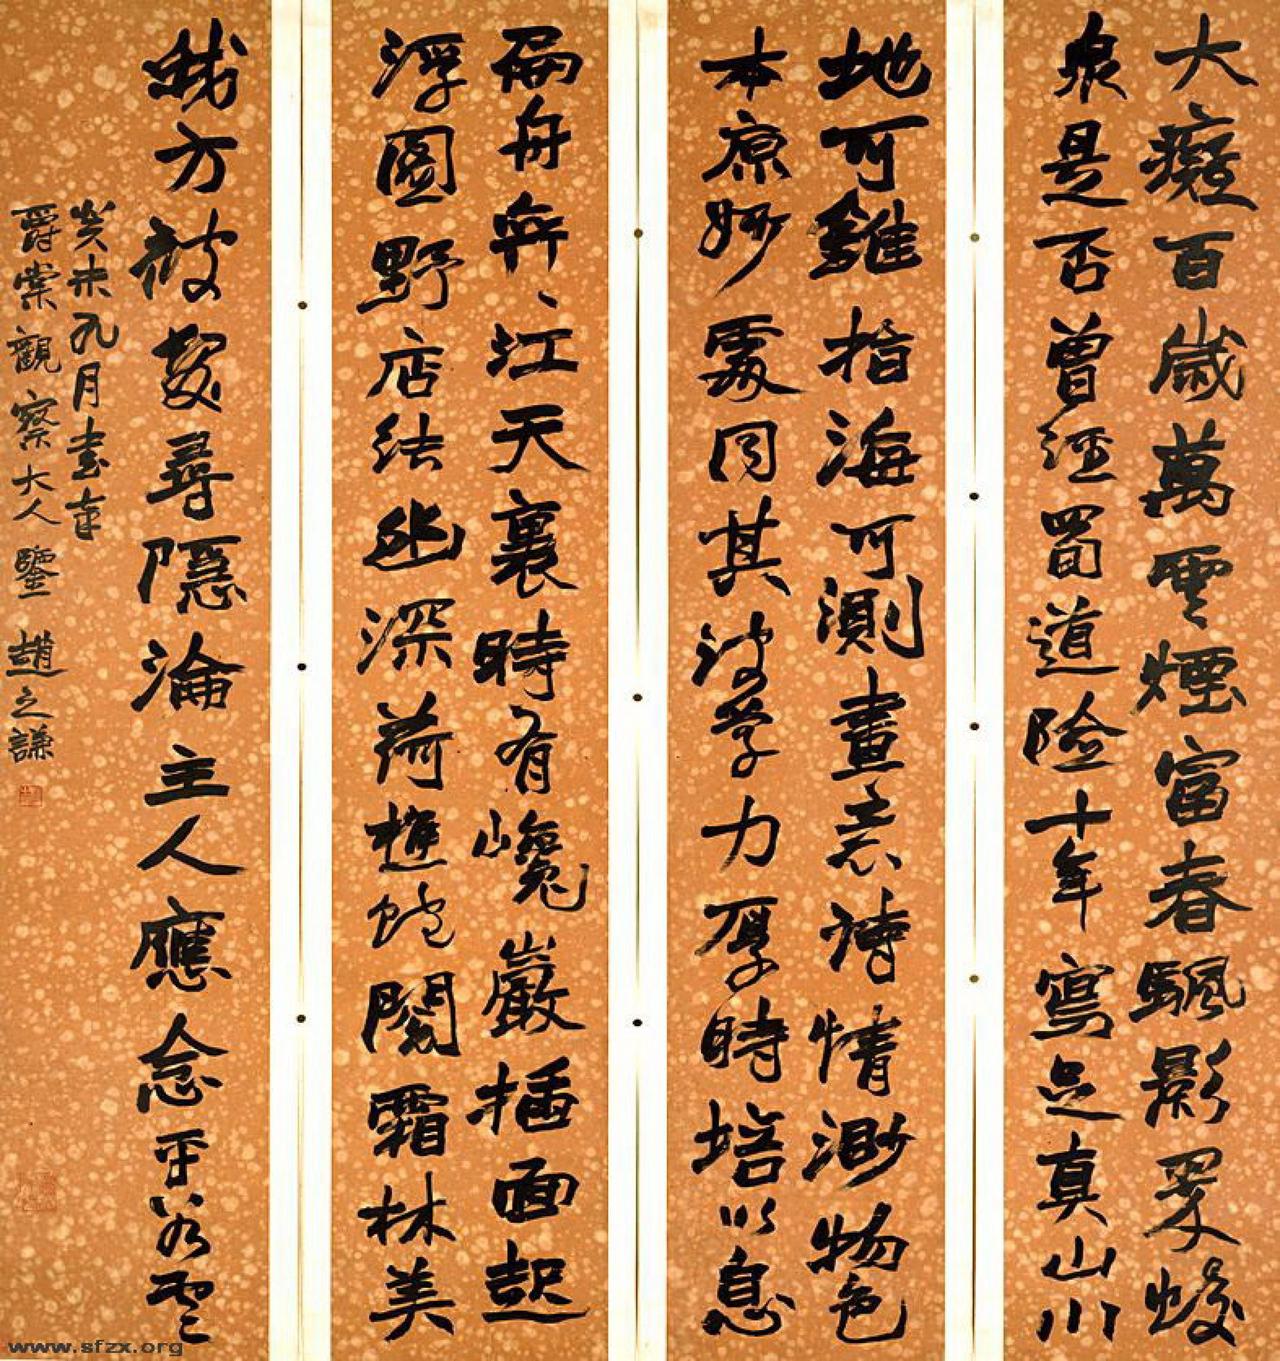 大癡百歲萬雲煙富春颿影蛟
泉是否曾經蜀道險十年寫足真山川
地可錐指海可測畫意詩情渺物色
本原妙處同其波學力厚時培以息
扁舟江天裏時有巉巖插面起
浮圖野店結幽深荷樵飽閱霜林美
我方被髮尋隱淪主人應念平若雲
癸未九月書奉
爵棠觀察大人鑒 趙之謙
www.sfzx.org